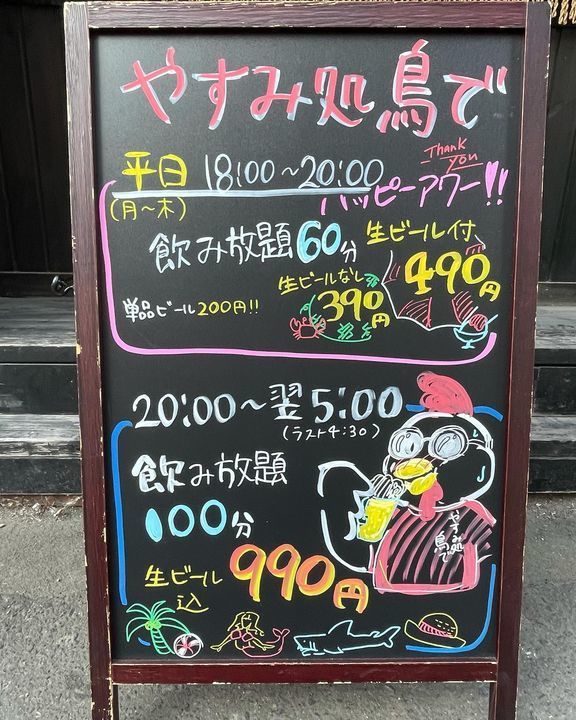 やすみ処 鳥で
Thank you
平日 18:00〜20:00
(月〜木)
ハッピーアワー!!
飲み放題60分
生ビール付
490円
生ビールなし
390円
単品ビール200円!!
20:00〜翌5:00
(ラスト4:30)
飲み放題
100分
生ビール込
990円
やすみ処
鳥で